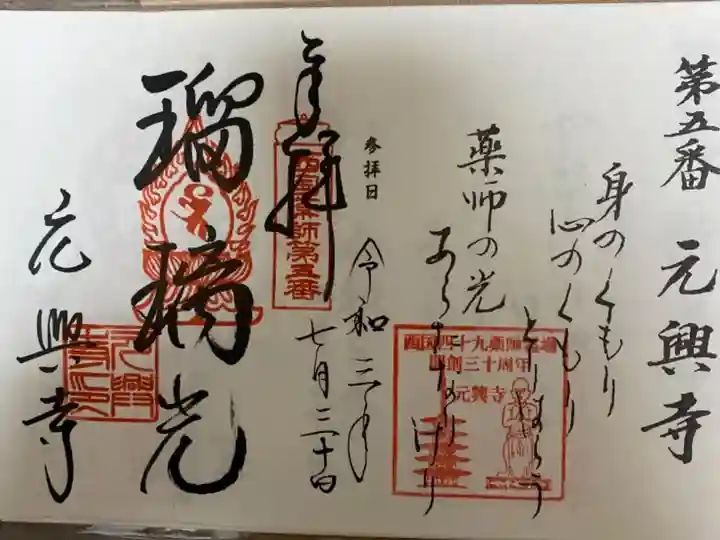 第五番 元興寺
身のくもり
心のくもり
とりはらう
薬師の光
あらたなりけり
西国四十九薬師霊場
開創三十周年
元興寺
参拝日
令和三年
七月三十日
奉拝
西国薬師第五番
瑠璃光
元興寺